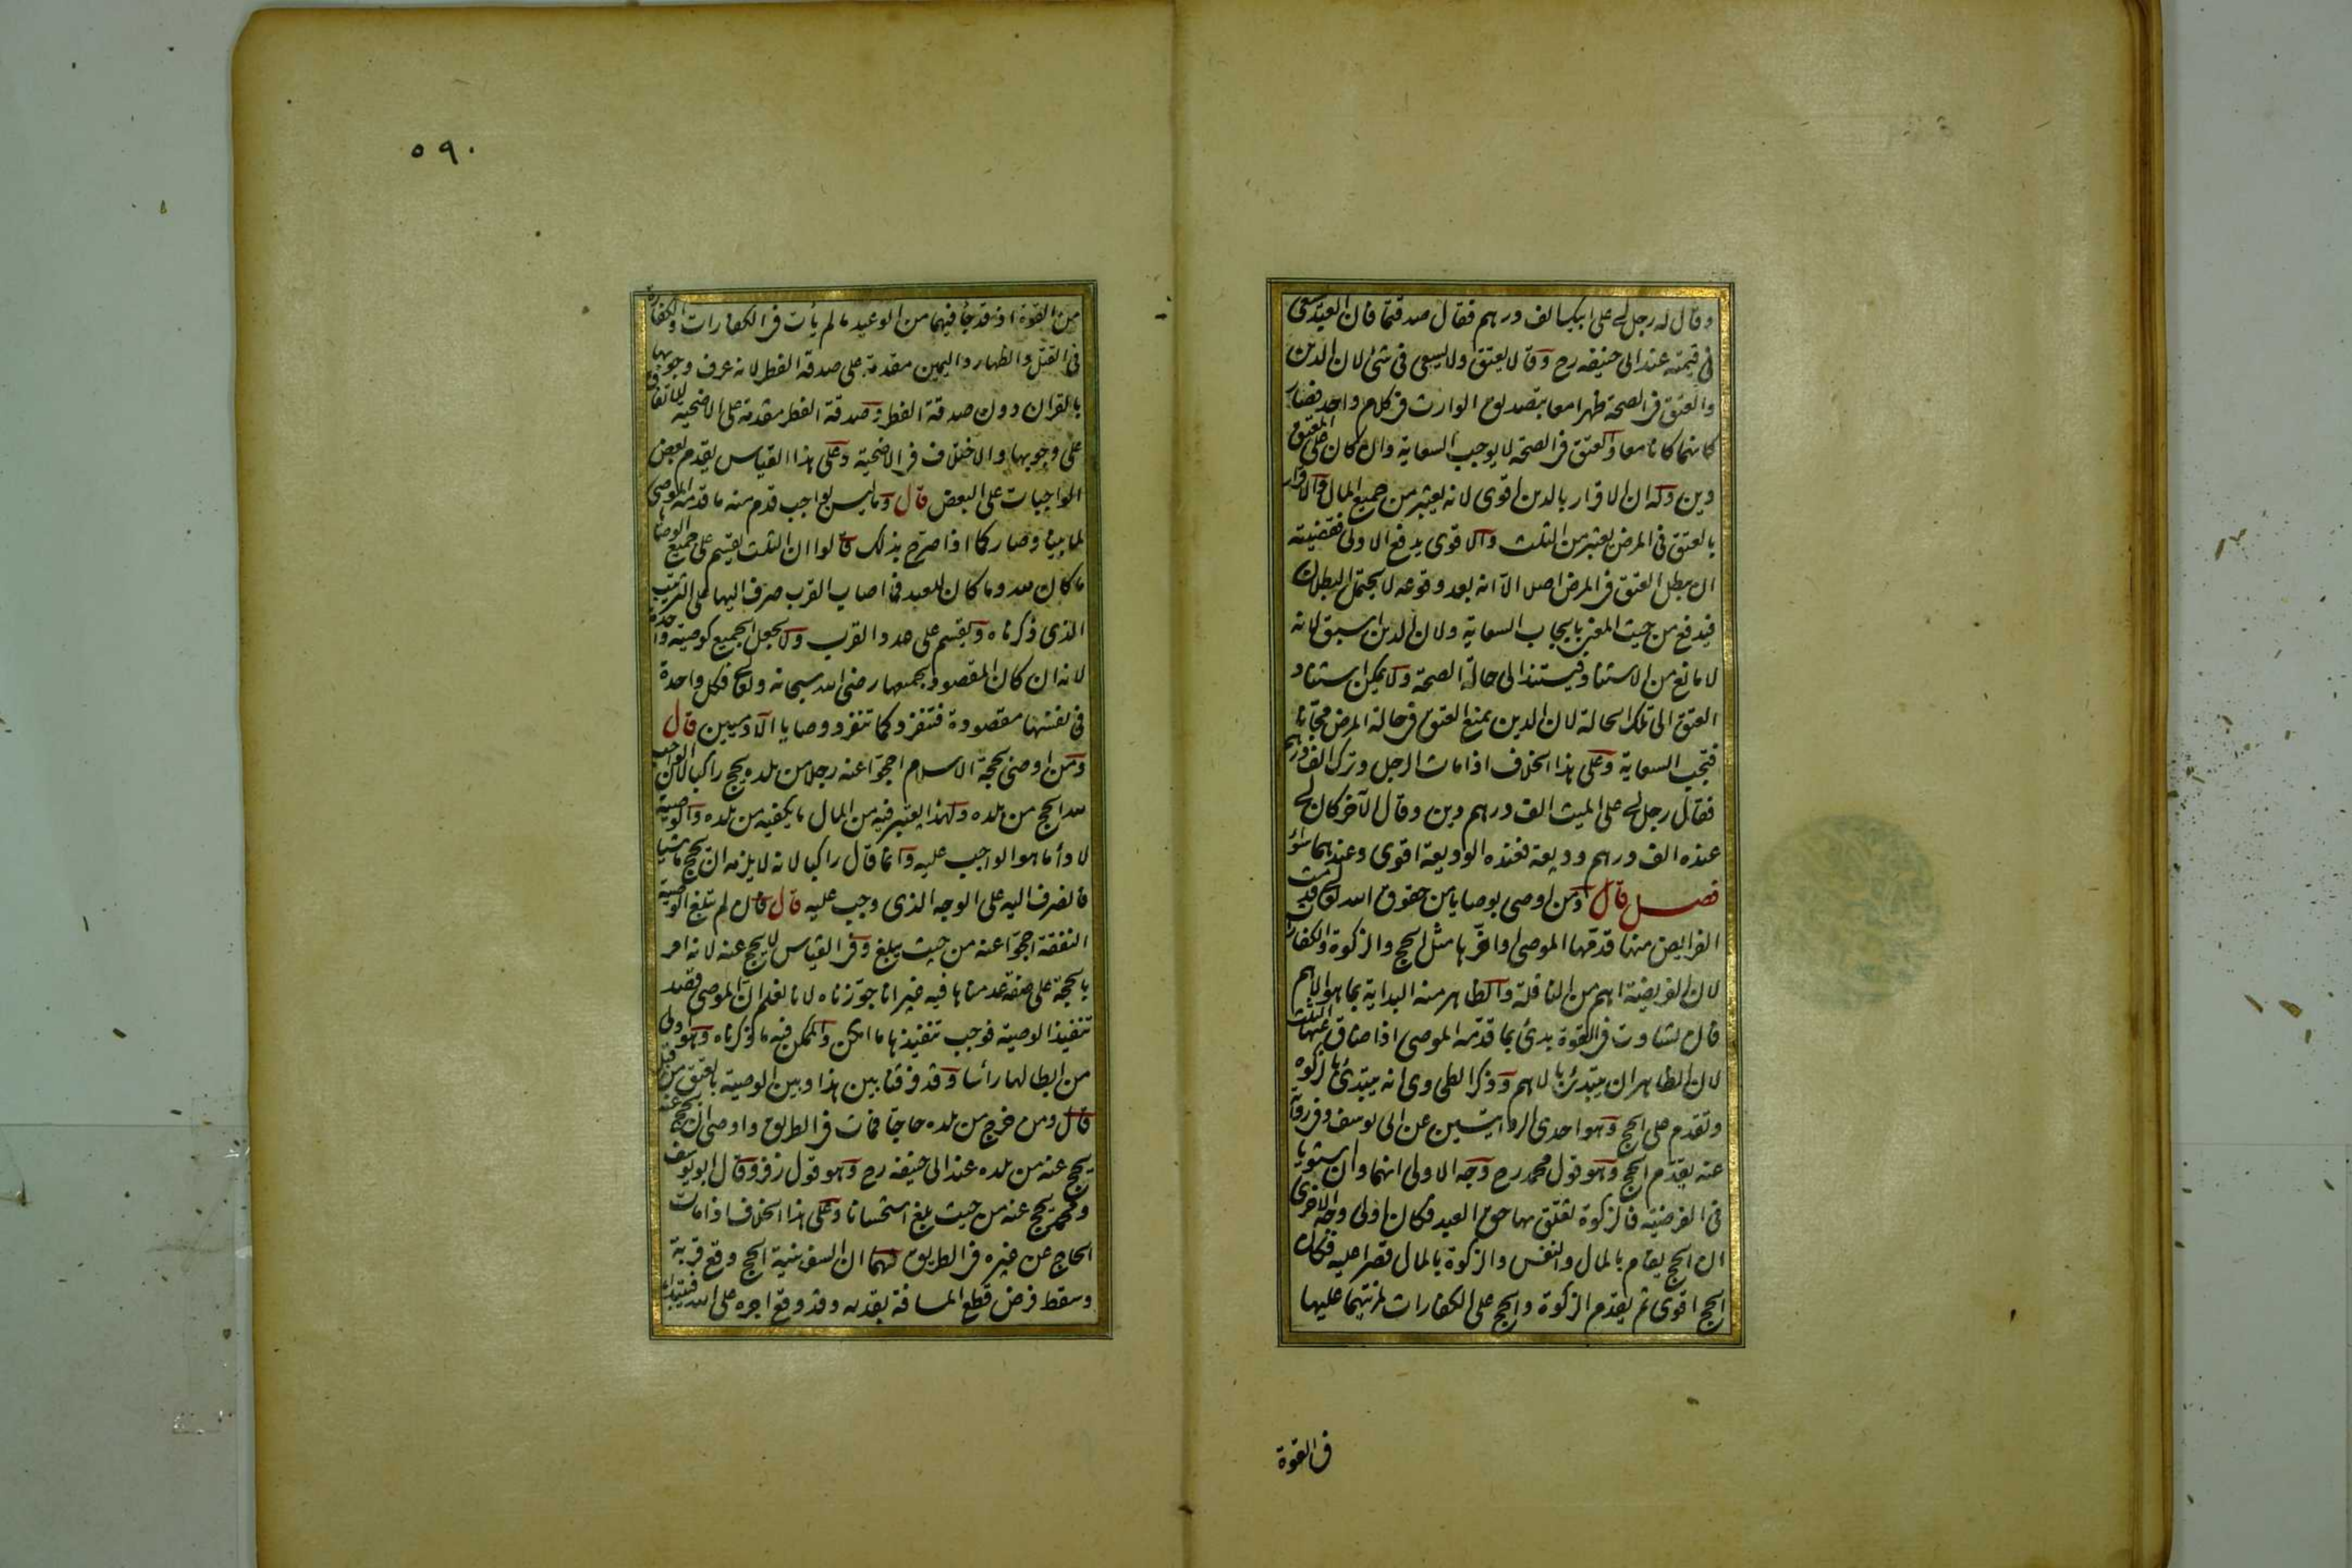 وقال له رجل لى على ابيك الف درهم فقال صدقتما فان العبد يسعى
فى قيمته عند ابى حنيفه رح وقالا يعتق ولا يسعى فى شئ لان الدين
والعتق فى الصحة ظهرا معا بتصديق الوارث فى كلام واحد فصار
كانهما كانا معا والعتق فى الصحة لا يوجب السعاية وان كان على المعتق
دين وله ان الاقرار بالدين اقوى لانه يعتبر من جميع المال والاقرار
بالعتق فى المرض يعتبر من الثلث والاقوى يدفع الادنى فقضيته
ان يبطل العتق فى المرض اصلا الا انه بعد وقوعه لا يحتمل البطلان
فيدفع من حيث المعنى بايجاب السعاية ولان الدين اسبق لانه
لا مانع من الاستناد فيستند الى حالة الصحة ولا يمكن استناد
العتق الى تلك الحالة لان الدين يمنع العتق فى حالة المرض مجانا
فتجب السعاية وعلى هذا الخلاف اذا مات الرجل وترك الف درهم
فقال رجل لى على الميت الف درهم دين وقال الآخر كان لى
عنده الف درهم وديعة فعنده الوديعة اقوى وعندهما سواء
فصل قال ومن اوصى بوصايا من حقوق الله تعالى قدمت
الفرايض منها قدمها الموصى او اخرها مثل الحج والزكوة والكفارات
لان الفريضة اهم من النافلة والظاهر منه البداية بما هو الاهم
فان تساوت فى القوة بدئ بما قدمه الموصى اذا ضاق عنها الثلث
لان الظاهر ان يبتدئ بالاهم وذكر الطحاوى انه يبتدئ بالزكوة
وتقدم على الحج وهو احدى الروايتين عن ابى يوسف وفى رواية
عنه يقدم الحج وهو قول محمد رح وجه الاولى انهما وان استويا
فى الفرضية فالزكوة تعلق بها حق العبد فكان اولى وجه الاخرى
ان الحج يقام بالمال والنفس والزكوة بالمال قصرا عليه فكان
الحج اقوى ثم يقدم الزكوة والحج على الكفارات لمزيتهما عليها
فى القوة
٥٩٠
من القوة اذ قد جأ فيهما من الوعيد ما لم يأت فى الكفارات والكفارة
فى القتل والظهار واليمين مقدمة على صدقة الفطر لانه عرف وجوبها
بالقران دون صدقة الفطر وصدقة الفطر مقدمة على الاضحية للاتفاق
على وجوبها والاختلاف فى الاضحية وعلى هذا القياس يقدم بعض
الواجبات على البعض قال وما ليس بواجب قدم منه ما قدمه الموصى
لما بينا وصار كما اذا صرح بذلك قالوا ان الثلث يقسم على جميع الوصايا
ما كان لله وما كان للعبد فما اصاب القرب صرف اليها على الترتيب
الذى ذكرناه ويقسم على عدد القرب ولا يجعل الجميع كوصية واحدة
لانه ان كان المقصود بجميعها رضى الله سبحانه وتعالى فكل واحدة
فى نفسها مقصودة فتنفرد كما تنفرد وصايا الآدميين قال
ومن اوصى بحجة الاسلام احجوا عنه رجلا من بلده يحج راكبا لان الواجب
لله الحج من بلده ولهذا يعتبر فيه من المال ما يكفيه من بلده والوصية
لادأ ما هو الواجب عليه وانما قال راكبا لانه لا يلزمه ان يحج ماشيا
فانصرف اليه على الوجه الذى وجب عليه قال فان لم تبلغ الوصية
النفقة احجوا عنه من حيث يبلغ وفى القياس لا يحج عنه لانه امر
بالحجة على صفة عدمناها فيه غير انا جوزناه لانا نعلم ان الموصى قصد
تنفيذ الوصية فوجب تنفيذها ما امكن والممكن فيه ما ذكرناه وهو اولى
من ابطالها رأسا وقد فرقنا بين هذا وبين الوصية بالعتق من قبل
قال ومن خرج من بلده حاجا فمات فى الطريق واوصى ان يحج عنه
يحج عنه من بلده عند ابى حنيفه رح وهو قول زفر وقال ابو يوسف
ومحمد يحج عنه من حيث بلغ استحسانا وعلى هذا الخلاف اذا مات
الحاج عن غيره فى الطريق لهما ان السفر بنية الحج وقع قربة
وسقط فرض قطع المسافة بقدره وقد وقع اجره على الله فيبتدأ